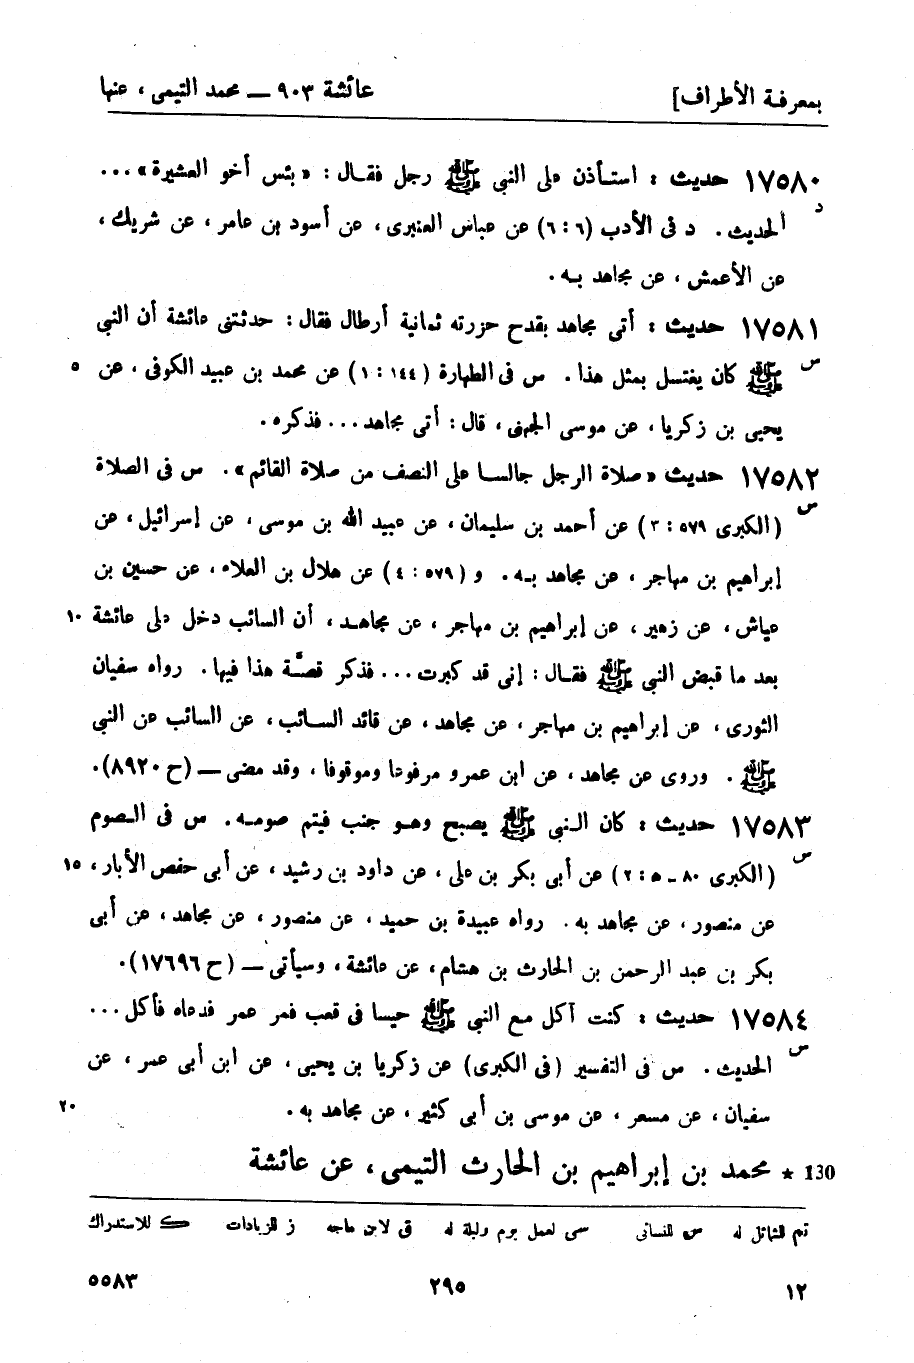 بمعرفة الأطراف] عائشة ٩٠٣ — محمد التيمى ، عنها
١٧٥٨٠ حديث : استأذن على النبى ﷺ رجل فقال : «بئس أخو العشيرة» ...
د
الحديث . د فى الأدب (٦ : ٦) عن عباس العنبرى ، عن أسود بن عامر ، عن شريك ،
عن الأعمش ، عن مجاهد به .
١٧٥٨١ حديث : أتى مجاهد بقدح حزرته ثمانية أرطال فقال : حدثتنى عائشة أن النبى
س
ﷺ كان يغتسل بمثل هذا . س فى الطهارة (١٤٤ : ١) عن محمد بن عبيد الكوفى ، عن ٥
يحيى بن زكريا ، عن موسى الجهنى ، قال : أتى مجاهد ... فذكره .
١٧٥٨٢ حديث «صلاة الرجل جالسا على النصف من صلاة القائم» . س فى الصلاة
س
(الكبرى ٥٧٩ : ٣) عن أحمد بن سليمان ، عن عبيد الله بن موسى ، عن إسرائيل ، عن
إبراهيم بن مهاجر ، عن مجاهد به . و (٥٧٩ : ٤) عن هلال بن العلاء ، عن حسين بن
عياش ، عن زهير ، عن إبراهيم بن مهاجر ، عن مجاهد ، أن السائب دخل على عائشة ١٠
بعد ما قبض النبى ﷺ فقال : إنى قد كبرت ... فذكر قصّة هذا فيها . رواه سفيان
الثورى ، عن إبراهيم بن مهاجر ، عن مجاهد ، عن قائد السائب ، عن السائب عن النبى
ﷺ . وروى عن مجاهد ، عن ابن عمرو مرفوعا وموقوفا ، وقد مضى — (ح ٨٩٢٠) .
١٧٥٨٣ حديث : كان النبى ﷺ يصبح وهو جنب فيتم صومه . س فى الصوم
س
(الكبرى ٨٠ - ٥ : ٢) عن أبى بكر بن على ، عن داود بن رشيد ، عن أبى حفص الأبار ، ١٥
عن منصور ، عن مجاهد به . رواه عبيدة بن حميد ، عن منصور ، عن مجاهد ، عن أبى
بكر بن عبد الرحمن بن الحارث بن هشام ، عن عائشة ، وسيأتى — (ح ١٧٦٩٦) .
١٧٥٨٤ حديث : كنت آكل مع النبى ﷺ حيسا فى قعب فمر عمر فدعاه فأكل ...
س
الحديث . س فى التفسير (فى الكبرى) عن زكريا بن يحيى ، عن ابن أبى عمر ، عن
سفيان ، عن مسعر ، عن موسى بن أبى كثير ، عن مجاهد به . ٢٠
130 ★ محمد بن إبراهيم بن الحارث التيمى ، عن عائشة
تم للشمائل له س للنسائى سى لعمل يوم وليلة له ق لابن ماجه ز للزيادات ك للاستدراك
١٢ ٢٩٥ ٥٥٨٣